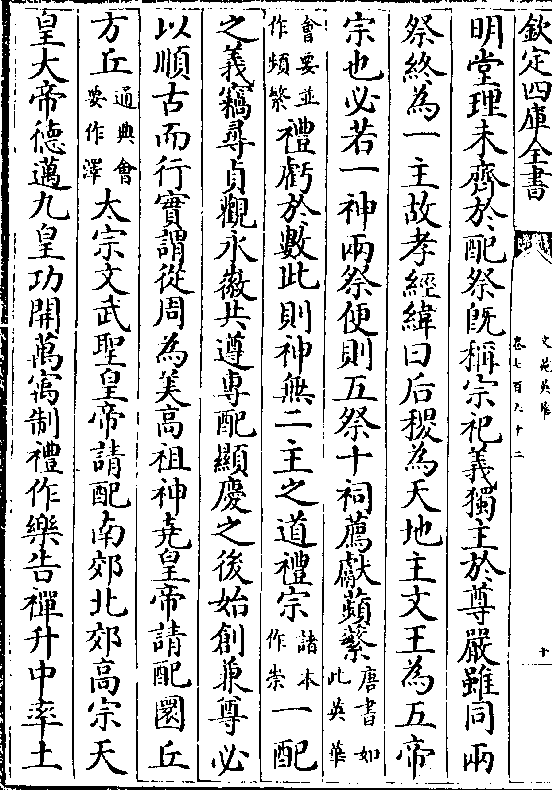 欽定四庫全書
文苑英華
卷七百六十二
十
明堂理未齊於配祭旣稱宗祀義獨主於尊嚴雖同兩
祭終為一主故孝經緯曰后稷為天地主文王為五帝
宗也必若一神兩祭便則五祭十祠薦獻蘋蘩唐書如此英華
會要並作頻繁禮虧於數此則神無二主之道禮宗諸本作崇一配
之義竊尋貞觀永徽共遵専配顯慶之後始創兼尊必
以順古而行實謂從周為美高祖神堯皇帝請配圜丘
方丘通典會要作澤太宗文武聖皇帝請配南郊北郊高宗天
皇大帝德邁九皇功開萬㝢制禮作樂告禪升中率土